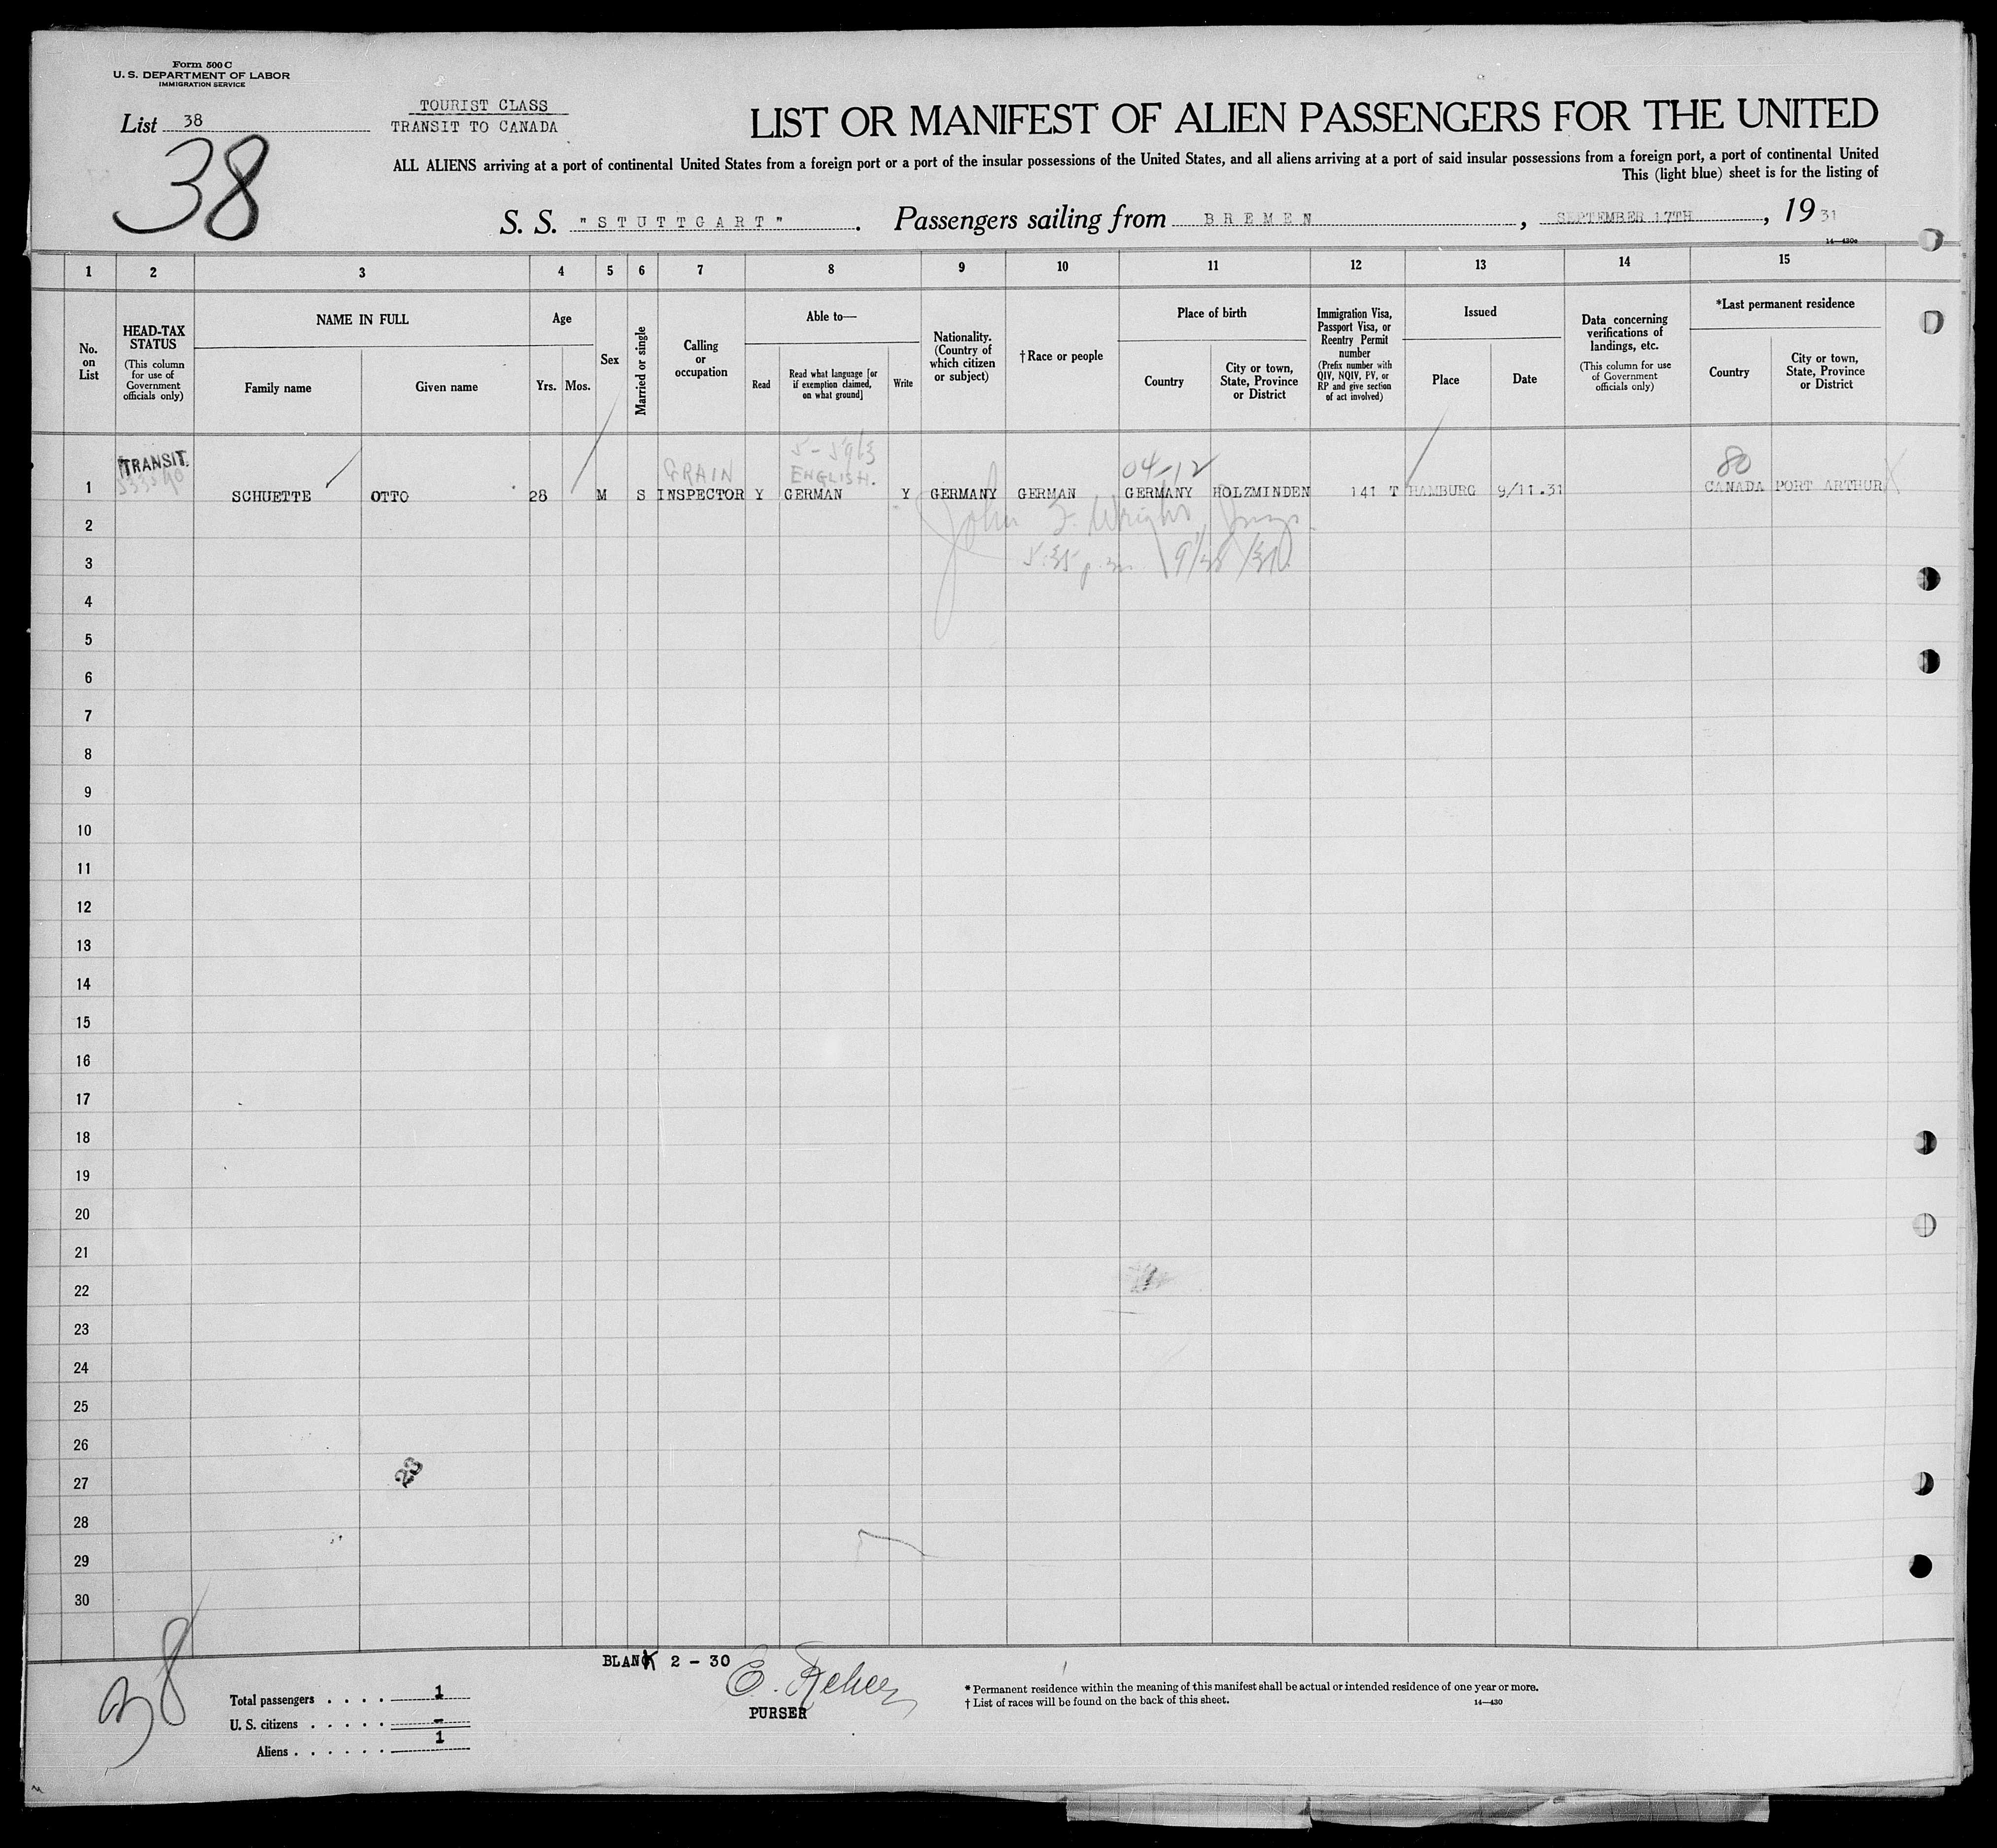 Form 500 C
U. S. DEPARTMENT OF LABOR
IMMIGRATION SERVICE
List 38
38
TOURIST CLASS
TRANSIT TO CANADA
LIST OR MANIFEST OF ALIEN PASSENGERS FOR THE UNITED
ALL ALIENS arriving at a port of continental United States from a foreign port or a port of the insular possessions of the United States, and all aliens arriving at a port of said insular possessions from a foreign port, a port of continental United
This (light blue) sheet is for the listing of
S. S. "STUTTGART". Passengers sailing from BREMEN, SEPTEMBER 17TH, 1931
14—430c
1 2 3 4 5 6 7 8 9 10 11 12 13 14 15
No. on List
HEAD-TAX STATUS
(This column for use of Government officials only)
NAME IN FULL
Family name
Given name
Age
Yrs. Mos.
Sex
Married or single
Calling or occupation
Able to—
Read
Read what language [or if exemption claimed, on what ground]
Write
Nationality. (Country of which citizen or subject)
†Race or people
Place of birth
Country
City or town, State, Province or District
Immigration Visa, Passport Visa, or Reentry Permit number
(Prefix number with QIV, NQIV, PV, or RP and give section of act involved)
Issued
Place
Date
Data concerning verifications of landings, etc.
(This column for use of Government officials only)
*Last permanent residence
Country
City or town, State, Province or District
TRANSIT. GRAIN 5-5963 ENGLISH. 04-12 80
1 SCHUETTE OTTO 28 M S INSPECTOR Y GERMAN Y GERMANY GERMAN GERMANY HOLZMINDEN 141 T HAMBURG 9/11.31 CANADA PORT ARTHUR X
2 John Wright
3 5:35 p.m. 9/28/31
4
5
6
7
8
9
10
11
12
13
14
15
16
17
18
19
20
21
22
23
24
25
26
27
23
28
29
30
38
BLANK 2 - 30
PURSER
Total passengers . . . . 1
U. S. citizens . . . . . -
Aliens . . . . . . 1
* Permanent residence within the meaning of this manifest shall be actual or intended residence of one year or more.
† List of races will be found on the back of this sheet.
14—430